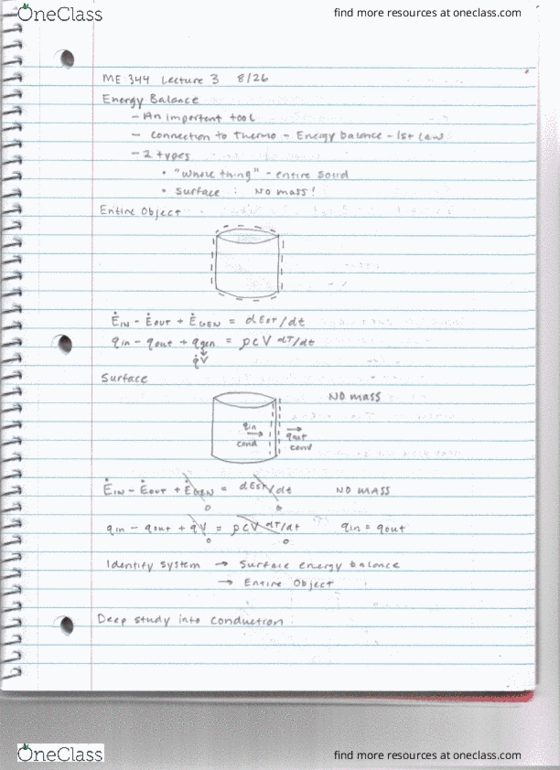 OneClass
find more resources at oneclass.com
ME 344 Lecture 3 8/26
Energy Balance
- An important tool
- Connection to Thermo - Energy balance - 1st Law
- 2 types
• "Whole thing" - entire solid
• Surface : No mass!
Entire Object
Ė_IN - Ė_OUT + Ė_GEN = dE_ST/dt
q_in - q_out + q_gen = ρcV dT/dt
q̇V
Surface
NO MASS
q_in
cond
q_out
cond
Ė_IN - Ė_OUT + Ė_GEN = dE_ST/dt NO MASS
0 0
q_in - q_out + q̇V = ρcV dT/dt q_in = q_out
0 0
Identify system → Surface energy balance
→ Entire Object
Deep study into conduction
OneClass
find more resources at oneclass.com